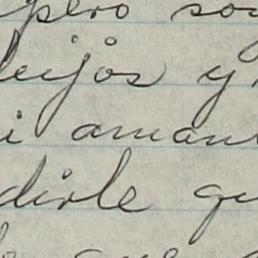 pero so
leijos y
i aman
dirle qu